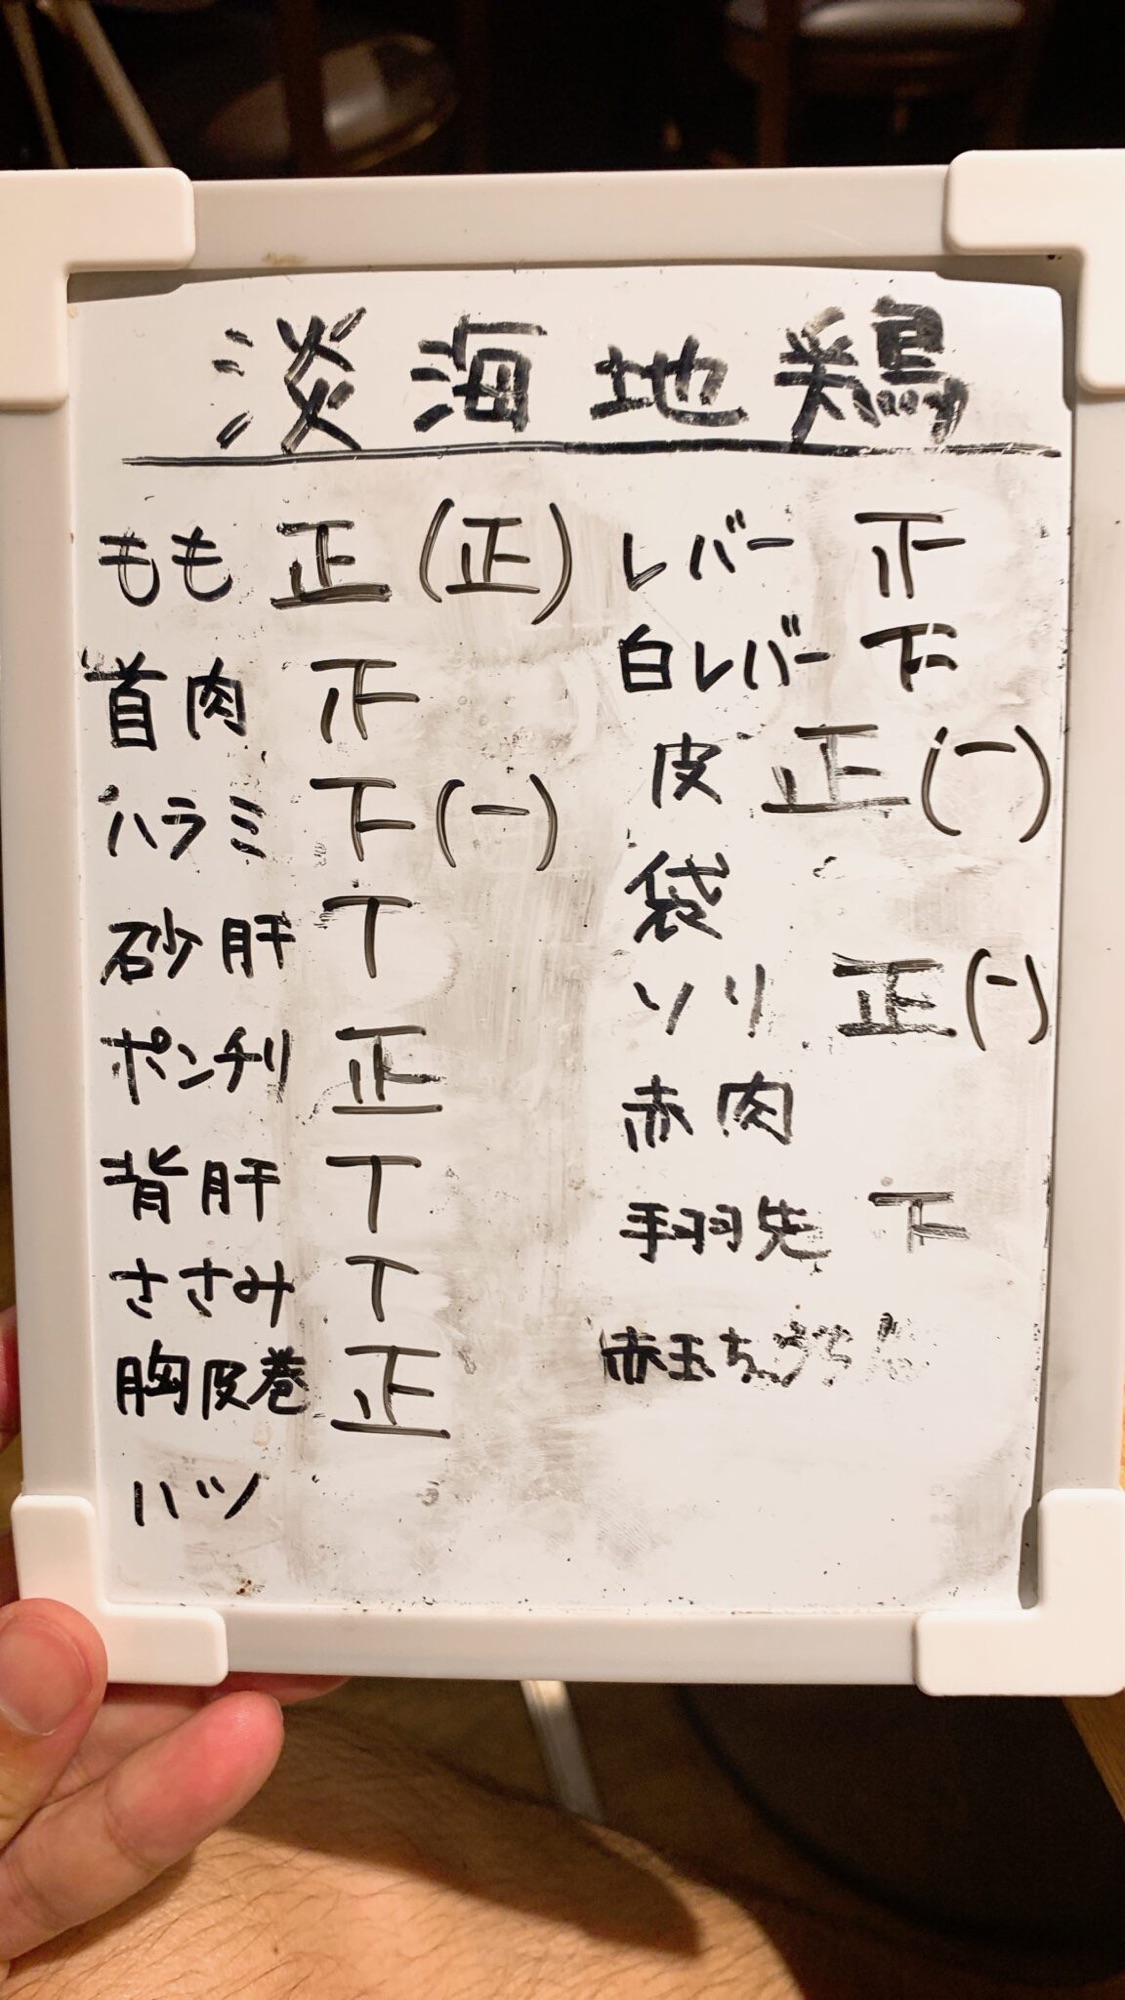 淡海地鶏
もも 正 (正)
首肉 𤴓
ハラミ 下 (一)
砂肝 丅
ボンチリ 正
背肝 丅
ささみ 丅
胸皮巻 正
ハツ
レバー 𤴓
白レバー 下
皮 正 (一)
袋
ソリ 正 (一)
赤肉
手羽先 下
赤玉ちょうちん